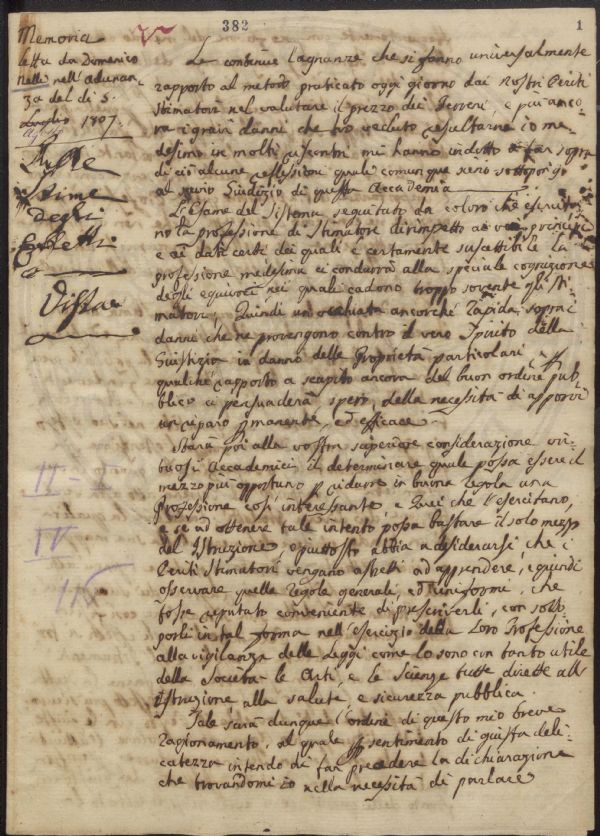 382
1
Memoria
letta da Domenico
Nelli nell'Adunan-
za del dì 5.
Luglio 1807.
Agosto
Sulle
Stime
Degli
Vista
II - I
IV
Le continue lagnanze che si fanno universalmente
rapporto al metodo praticato ogni giorno dai nostri Periti
Stimatori nel valutare il prezzo dei Terreni, e più anco-
ra i gravi danni che ho veduto resultarne io me-
desimo in molti riscontri mi hanno indotto a far sopra
di ciò alcune reflessioni quali comunque sieno sottopongo
al savio Giudizio di questa Accademia
L'Esame del Sistema seguitato da coloro che esercita-
no la professione di Stimatore dirimpetto ai veri principi
e ai dati certi dei quali è certamente suscettibile la
professione medesima ci condurrà alla speciale cognizione
degli equivoci nei quali cadono troppo sovente gli Sti-
matori; Quindi un'occhiata ancorché rapida sopra i
danni che ne provengono contro il vero Spirito della
Giustizia in danno delle Proprietà particolari, e in
qualche rapporto a scapito ancora del buon ordine pub-
blico ci persuaderà spero, della necessità di apporvi
un riparo permanente, ed efficace
Starà poi alla vostra superiore considerazione vir-
tuosi Accademici il determinare quale possa essere il
mezzo più opportuno p ridurre in buona regola una
Professione così interessante, e quei che l'esercitano,
e se ad ottenere tale intento possa bastare il solo mezzo
del Istruzione, o piuttosto abbia a desiderarsi, che i
Periti Stimatori vengano astretti ad apprendere, e quindi
osservare quelle regole generali, ed uniformi, che
fosse reputato conveniente di prescriverli, con sotto-
porli in tal forma nell'esercizio della Loro Professione
alla vigilanza delle Leggi come lo sono con tanto utile
della Società le Arti, e le Scienze tutte dirette all'
Istruzione, alla salute, e sicurezza pubblica.
Tale sarà dunque l'ordine di questo mio breve
Ragionamento, al quale p sentimento di giusta deli-
catezza intendo di far precedere la dichiarazione
che trovandomi io nella necessità di parlare